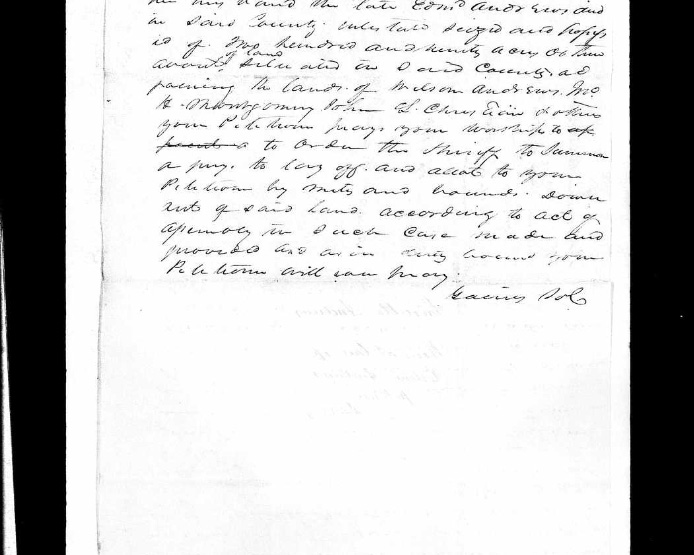 her husband the late Edmd Andrews and
in Said County intestate Seized and Possess
ed of Two hundred and ninety acres or there
abouts of land Situated in Said County ad
joining the lands of Wilson Andrews, Mc
H. Montgomery John L. Christian & others
your Petitioner prays your Worship to ap
a to order the Sheriff to Summon
a jury to lay off and allot to your
Petitioner by mets and bounds. Dower
out of Said land according to act of
assembly in Such Case made and
provided and as in duty bound your
Petitioner will ever pray.
Gaines Sol